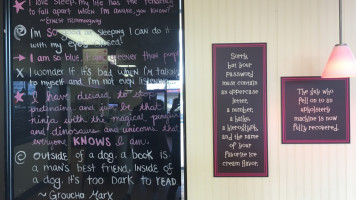 I love sleep. My life has the tendency
to fall apart when I'm awake, you know?"
~Ernest Hemmingway
I'm so at sleeping I can do it
with my eyes closed!
I am so blue, I am than people
I wonder if it's bad when I'm talking
to myself and I'm not listening
I have decided to stop
pretending and just be that
ninja with the magical penguin
and dinosaurs and unicorns that
everyone KNOWS I am.
Outside of a dog, a book is
a man's best friend. Inside of
a dog, it's too dark to read
~ Groucho Marx
Sorry,
but your
password
must contain
an uppercase
letter,
a number,
a haiku,
a hieroglyph,
and the name
of your
favorite ice
cream flavor.
The guy who
fell on to an
upholstery
machine is now
fully recovered.